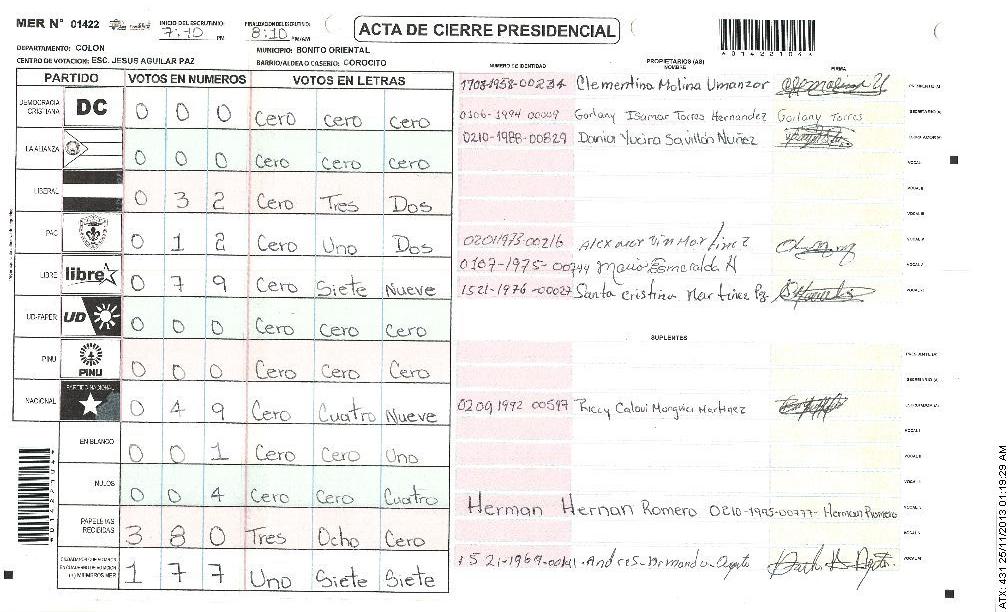 MER N° 01422 INICIO DEL ESCRUTINIO: 7:10 PM FINALIZACION DEL ESCRUTINIO: 8:10 PM/AM
ACTA DE CIERRE PRESIDENCIAL
DEPARTAMENTO: COLON MUNICIPIO: BONITO ORIENTAL
CENTRO DE VOTACION: ESC. JESUS AGUILAR PAZ BARRIO/ALDEA O CASERIO: COROCITO
PARTIDO VOTOS EN NUMEROS VOTOS EN LETRAS
DEMOCRACIA CRISTIANA DC 0 0 0 Cero cero cero
LA ALIANZA 0 0 0 Cero Cero cero
LIBERAL 0 3 2 Cero Tres Dos
PAC 0 1 2 Cero Uno Dos
LIBRE libre 0 7 9 Cero Siete Nueve
UD-FAPER UD 0 0 0 Cero Cero Cero
PINU PINU 0 0 0 Cero Cero Cero
NACIONAL PARTIDO NACIONAL 0 4 9 Cero Cuatro Nueve
EN BLANCO 0 0 1 Cero Cero Uno
NULOS 0 0 4 Cero Cero Cuatro
PAPELETAS RECIBIDAS 3 8 0 Tres Ocho Cero
1 7 7 Uno Siete Siete
NUMERO DE IDENTIDAD PROPIETARIOS (AS) NOMBRE FIRMA
1708-1958-00234 Clementina Molina Umanzor
0106-1994 00009 Gorlany Isamar Torres Hernandez Gorlany Torres
0210-1988-00829 Dania Yucira Savillón Nuñez
Martinez
0107-1975- Esmeralda
1521-1976-00027 Santa Cristina Martinez
SUPLENTES
0209 1992 00597 Martinez
Herman Hernan Romero 0210-1995-00777- Herman Romero
ATX: 431 25/11/2013 01:19:29 AM